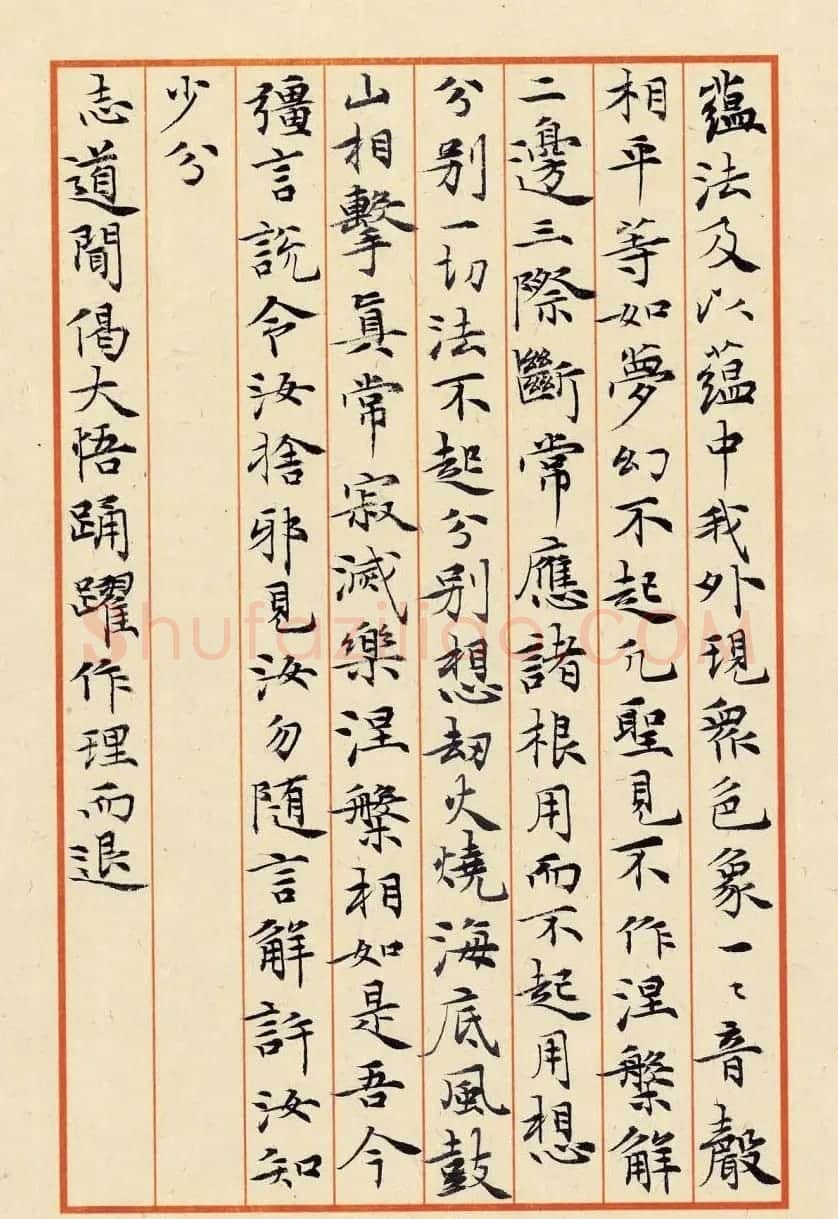 蘊法及以蘊中我外現衆色象一〻音聲
相平等如夢幻不起凡聖見不作涅槃解
二邊三際斷常應諸根用而不起用想
分別一切法不起分別想劫火燒海底風鼓
山相擊真常寂滅樂涅槃相如是吾今
彊言說令汝捨邪見汝勿随言解許汝知
少分
志道聞偈大悟踊躍作理而退
Shufaziliao.COM